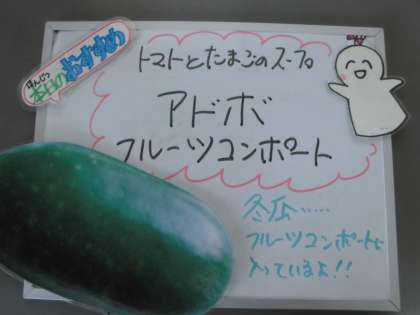 ほんじつ
本日のおすすめ
トマトとたまごのスープ
アドボ
フルーツコンポート
冬瓜……
フルーツコンポートに
入っているよ!!